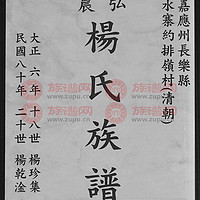 嘉應州長樂縣
水寨約排嶺村(清朝)
弘農
楊氏族譜
大正六年十八世 楊珍集
民國八十年二十世 楊乾淦
族譜网
www.zupu.cn